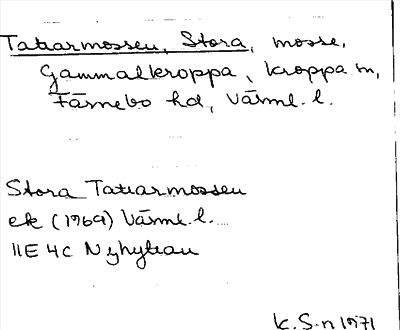 Tattarmossen, Stora, mosse,
Gammalkroppa, Kroppa sn,
Färnebo hd, Värml. l.
Stora Tattarmossen
ek (1969) Värml. l.
11E 4c Nyhyttan
K. S-n 1971